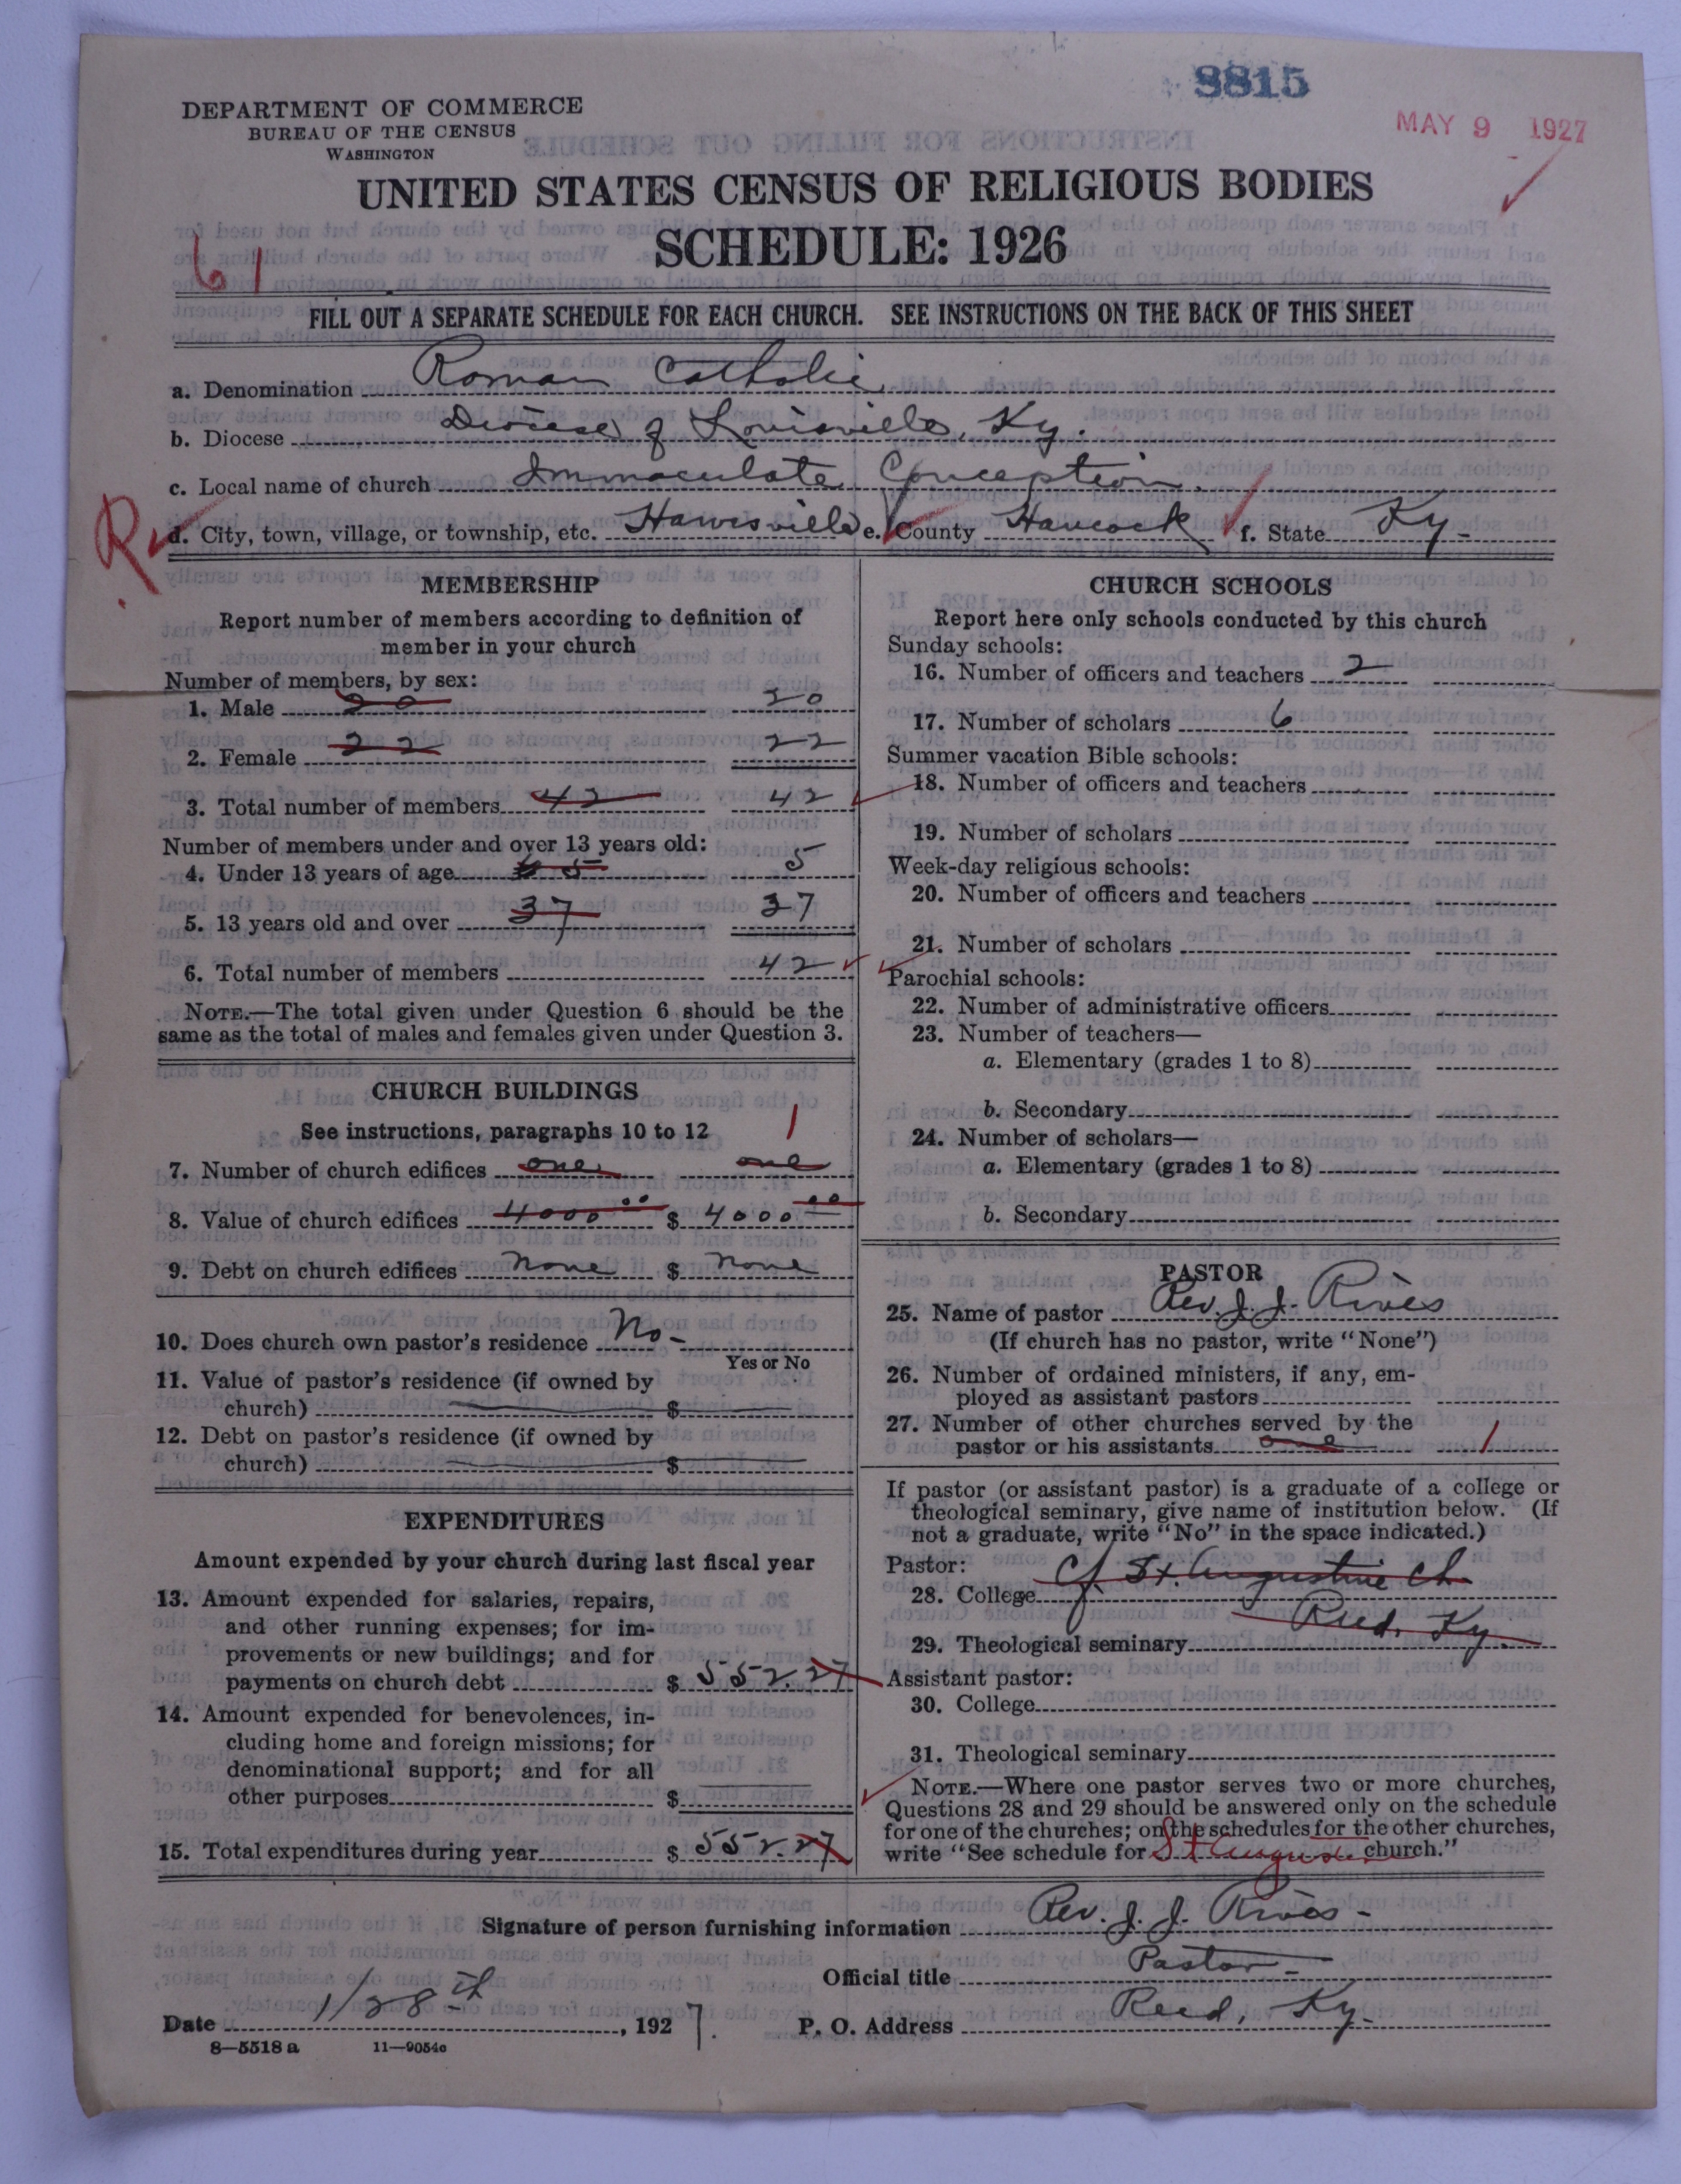 8815
MAY 9 1927
DEPARTMENT OF COMMERCE
BUREAU OF THE CENSUS
WASHINGTON
UNITED STATES CENSUS OF RELIGIOUS BODIES
SCHEDULE: 1926
61
FILL OUT A SEPARATE SCHEDULE FOR EACH CHURCH. SEE INSTRUCTIONS ON THE BACK OF THIS SHEET
a. Denomination Roman Catholic
b. Diocese Diocese of Louisville, Ky.
c. Local name of church Immaculate Conception.
R
d. City, town, village, or township, etc. Hawesville e. County Hancock f. State Ky.
MEMBERSHIP
Report number of members according to definition of
member in your church
Number of members, by sex:
1. Male 20 20
2. Female 22 22
3. Total number of members 42 42
Number of members under and over 13 years old:
4. Under 13 years of age 5 5
5. 13 years old and over 37 37
6. Total number of members 42
NOTE.—The total given under Question 6 should be the
same as the total of males and females given under Question 3.
CHURCH BUILDINGS
See instructions, paragraphs 10 to 12
1
7. Number of church edifices one one
8. Value of church edifices 4000 00 $ 4000 00
9. Debt on church edifices none $ none
10. Does church own pastor's residence No-
Yes or No
11. Value of pastor's residence (if owned by
church) $
12. Debt on pastor's residence (if owned by
church) $
EXPENDITURES
Amount expended by your church during last fiscal year
13. Amount expended for salaries, repairs,
and other running expenses; for im-
provements or new buildings; and for
payments on church debt $ 552.27
14. Amount expended for benevolences, in-
cluding home and foreign missions; for
denominational support; and for all
other purposes $
15. Total expenditures during year $ 552.27
CHURCH SCHOOLS
Report here only schools conducted by this church
Sunday schools:
16. Number of officers and teachers 2
17. Number of scholars 6
Summer vacation Bible schools:
18. Number of officers and teachers
19. Number of scholars
Week-day religious schools:
20. Number of officers and teachers
21. Number of scholars
Parochial schools:
22. Number of administrative officers
23. Number of teachers—
a. Elementary (grades 1 to 8)
b. Secondary
24. Number of scholars—
a. Elementary (grades 1 to 8)
b. Secondary
PASTOR
25. Name of pastor Rev. J. J. Rives
(If church has no pastor, write "None")
26. Number of ordained ministers, if any, em-
ployed as assistant pastors
27. Number of other churches served by the
pastor or his assistants one 1
If pastor (or assistant pastor) is a graduate of a college or
theological seminary, give name of institution below. (If
not a graduate, write "No" in the space indicated.)
Pastor:
28. College Cf. St. Augustine Ch.
29. Theological seminary Reed, Ky.
Assistant pastor:
30. College
31. Theological seminary
NOTE.—Where one pastor serves two or more churches,
Questions 28 and 29 should be answered only on the schedule
for one of the churches; on the schedules for the other churches,
write "See schedule for St Augustine church."
Signature of person furnishing information Rev. J. J. Rives-
Official title Pastor-
Date 1/28th, 1927. P. O. Address Reed, Ky.
8—5518 a 11—9054c